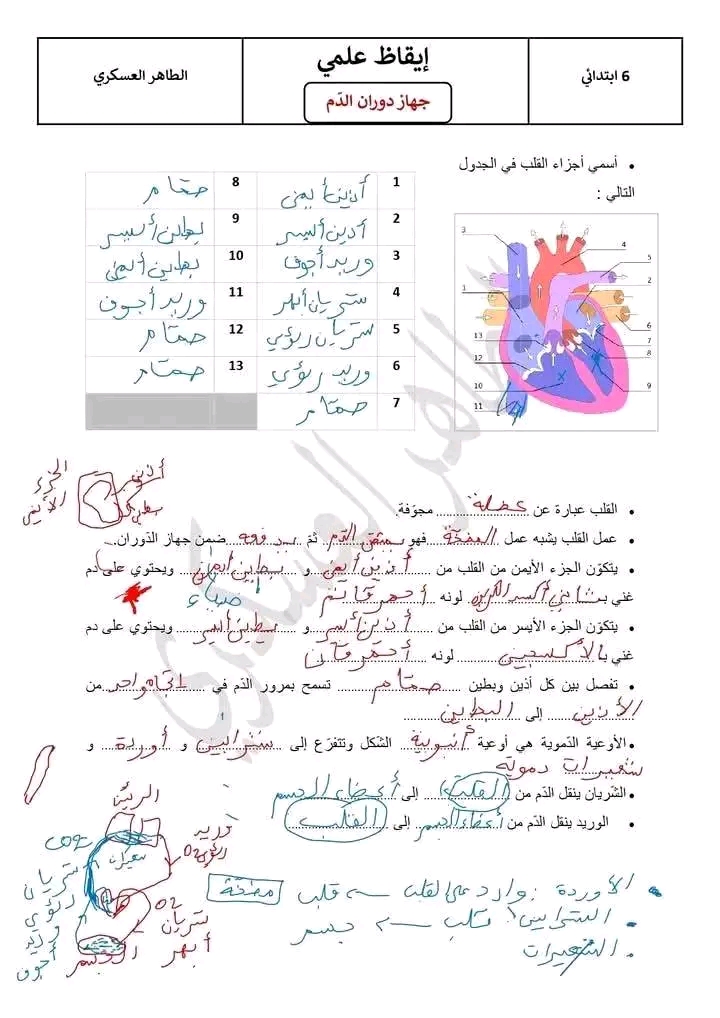 6 ابتدائي
إيقاظ علمي
جهاز دوران الدّم
الطاهر العسكري
• أسمي أجزاء القلب في الجدول
التالي :
1 أذين أيمن
2 أذين أيسر
3 وريد أجوف
4 شريان أبهر
5 شريان رئوي
6 وريد رئوي
7 صمّام
8 صمّام
9 بطين أيسر
10 بطين أيمن
11 وريد أجوف
12 صمّام
13 صمّام
3
4
5
2
1
6
13
7
12
8
10
9
11
الجزء الأيمن
أذين
بطين
• القلب عبارة عن عضلة مجوّفة.
• عمل القلب يشبه عمل المضخّة فهو يمتصّ الدّم ثمّ يدفعه ضمن جهاز الدّوران.
• يتكوّن الجزء الأيمن من القلب من أذين أيمن و بطين أيمن ويحتوي على دم
غني بـ ثاني أكسيد الكربون لونه أحمر قاتم
• يتكوّن الجزء الأيسر من القلب من أذين أيسر و بطين أيسر ويحتوي على دم
غني بـ الأكسجين لونه أحمر قان
• تفصل بين كل أذين وبطين صمّام تسمح بمرور الدّم في اتجاه واحد من
الأذين إلى البطين
• الأوعية الدّموية هي أوعية أنبوبية الشكل وتتفرّع إلى شرايين و أوردة و
شعيرات دموية
• الشّريان ينقل الدّم من القلب إلى أعضاء الجسم
• الوريد ينقل الدّم من أعضاء الجسم إلى القلب
الرئتين
CO2
وريد رئوي
O2
شريان رئوي
O2
شريان أبهر
وريد أجوف
الجسم
• الأوردة : وارد على القلب ← قلب مضخّة
• الشرايين : قلب ← جسم
• الشعيرات